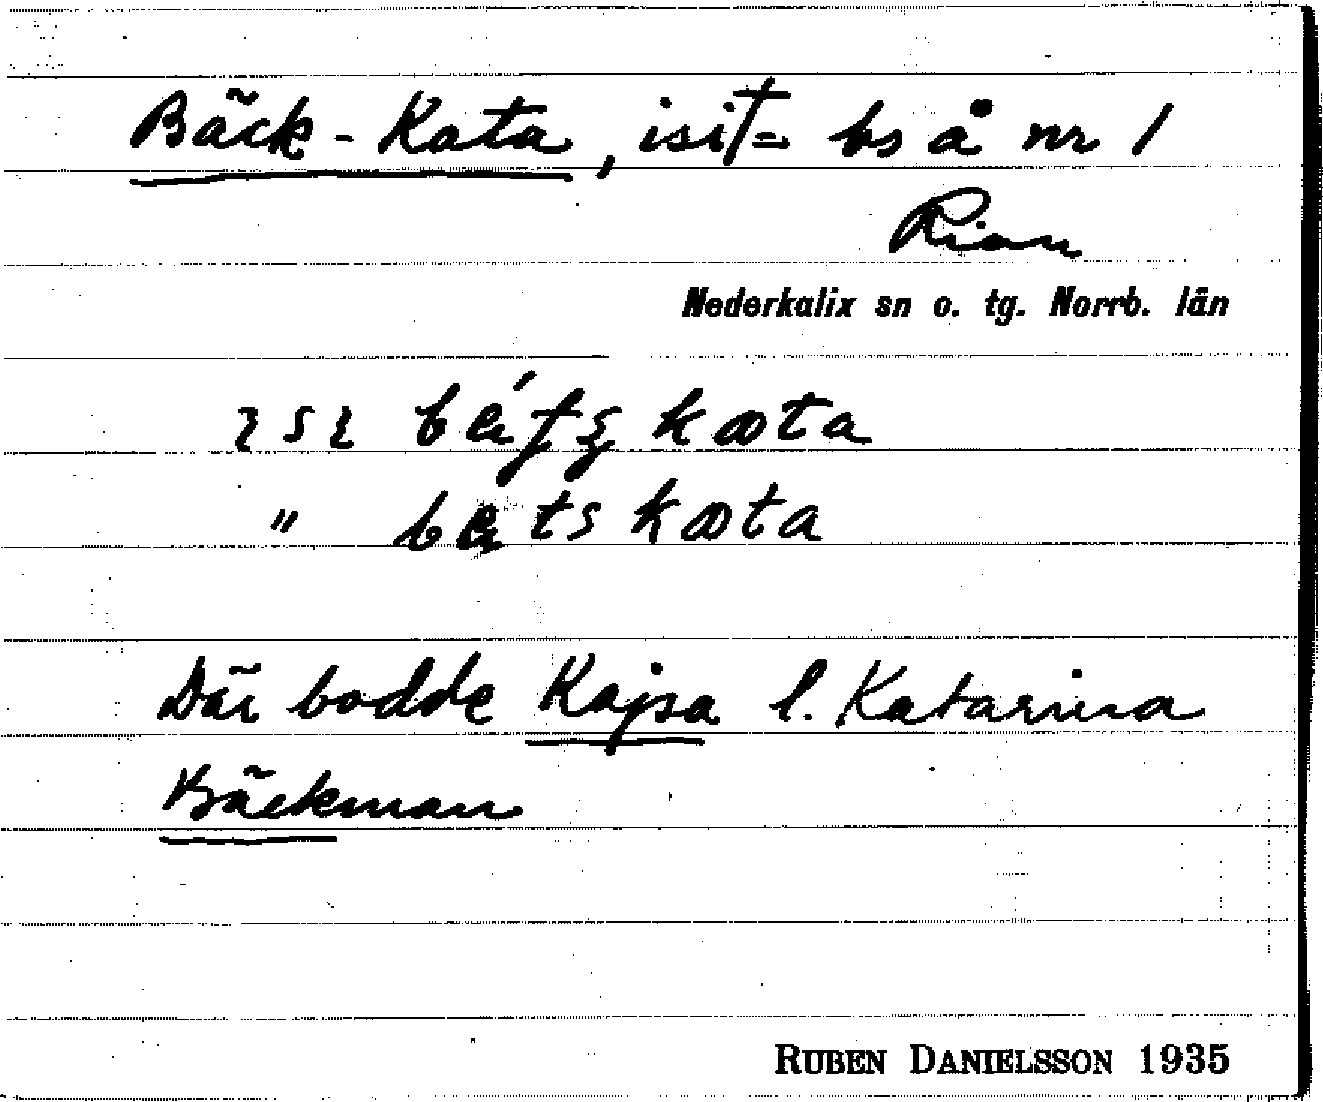 Bäck-Kata, isit= bs å nr 1
Rian
Nederkalix sn o. tg. Norrb. län
kata
" betskata
Där bodde Kajsa l. Katarina
Bäckman
RUBEN DANIELSSON 1935